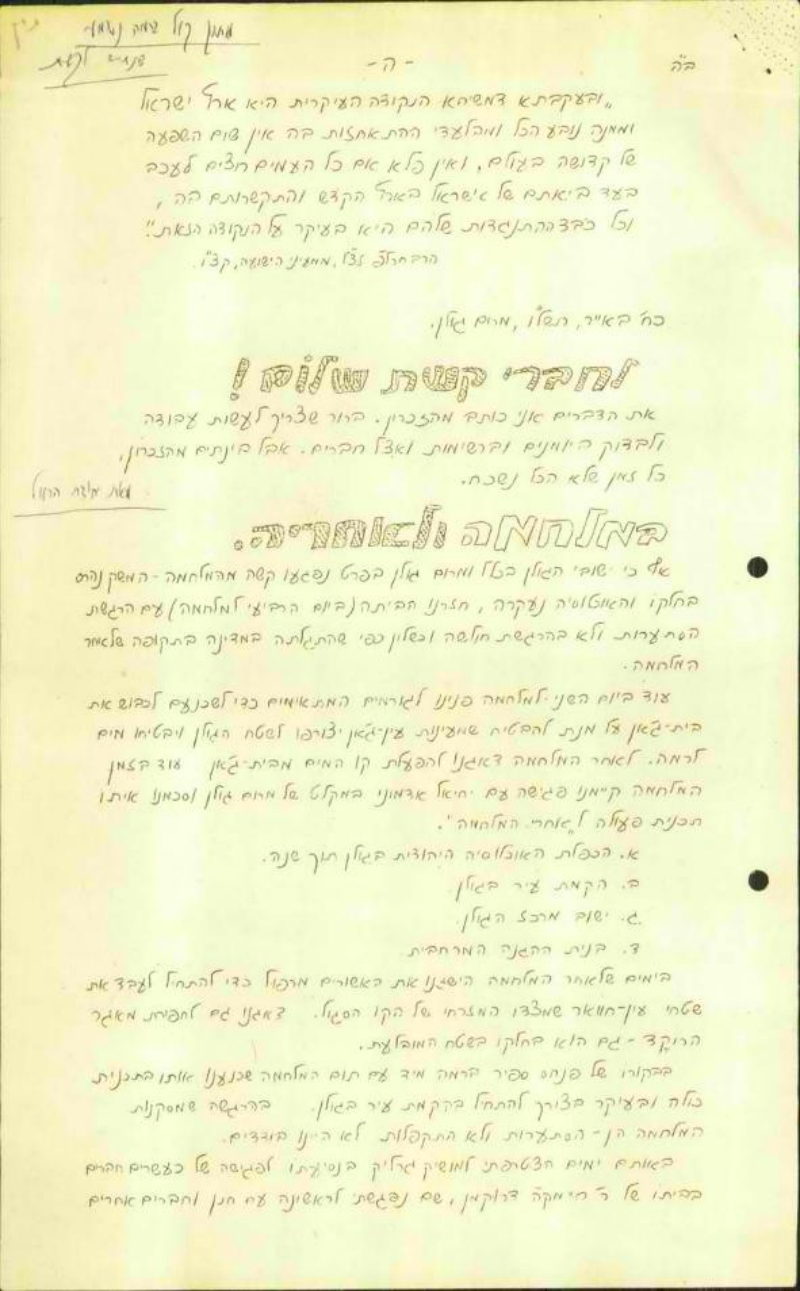 מתוך קול
שנתיים לקשת
ב"ה
-ה-
"ובעקבתא דמשיחא הנקודה העיקרית היא ארץ ישראל
וממנה נובע הכל ומבלעדי ההתאחזות בה אין שום השפעה
של קדושה בעולם, ואין פלא אם כל העמים רוצים לעכב
בעד ביאתם של ישראל בארץ הקדש והתקשרותם בה,
וכל כובד ההתנגדות שלהם היא בעיקר על הנקודה הזאת."
הרב חרל"פ זצ"ל, ממעיני הישועה, קצ"ו.
כח' באייר, תשל"ו, מרום גולן.
לחברי קשת שלום!
את הדברים אני כותב מהזכרון. ברור שצריך לעשות עבודה
ולבדוק ביומנים וברשימות ואצל חברים. אבל בינתים מהזכרון,
כל זמן שלא הכל נשכח.
מאת יהודה הראל
במלחמה ולאחריה.
אף כי ישובי הגולן בכלל ומרום גולן בפרט נפגעו קשה מהמלחמה - המשק נהרס
בחלקו והאוכלוסיה נעקרה, חזרנו הביתה (ביום הרביעי למלחמה) עם הרגשת
הסתערות ולא בהרגשת חולשה וכשלון כפי שהתגלתה במדינה בתקופה שלאחר
המלחמה.
עוד ביום השני למלחמה פנינו לגורמים המתאימים כדי לשכנעם לכבוש את
בית-ג'אן על מנת להבטיח שמעינות עין-ג'אן יצורפו לשטח הגולן ויבטיחו מים
לרמה. לאחר המלחמה דאגנו להפעלת קו המים מבית-ג'אן עוד בזמן
המלחמה קיימנו פגישה עם יחיאל אדמוני במקלט של מרום גולן וסכמנו איתו
תכנית פעולה ל"אחרי המלחמה".
א. הכפלת האוכלוסיה היהודית בגולן תוך שנה.
ב. הקמת עיר בגולן.
ג. ישוב מרכז הגולן.
ד. בנית ההגנה המרחבית
בימים שלאחר המלחמה השגנו את האשורים מרפול כדי להתחיל לעבד את
שטחי עין-חוואר שמצדו המזרחי של הקו הסגול. דאגנו גם לחפירת מאגר
הרוקד - גם הוא בחלקו בשטח המובלעת.
בבקורו של פנחס ספיר ברמה מיד עם תום המלחמה שכנענו אותו בתכנית
כולה ובעיקר בצורך להתחיל בהקמת עיר בגולן. בהרגשה שמסקנות
המלחמה הן - הסתערות ולא התקפלות לא היינו בודדים.
באותם ימים הצטרפתי למושיק גרליק בנסיעתו לפגישה של כעשרים חברים
בביתו של ר' חיימק'ה דרוקמן, שם נפגשתי לראשונה עם חנן וחברים אחרים